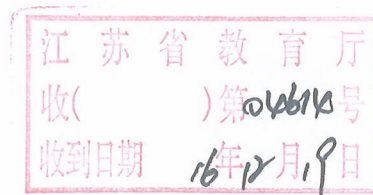 江苏省教育厅
收( )第04614号
收到日期 16年12月19日